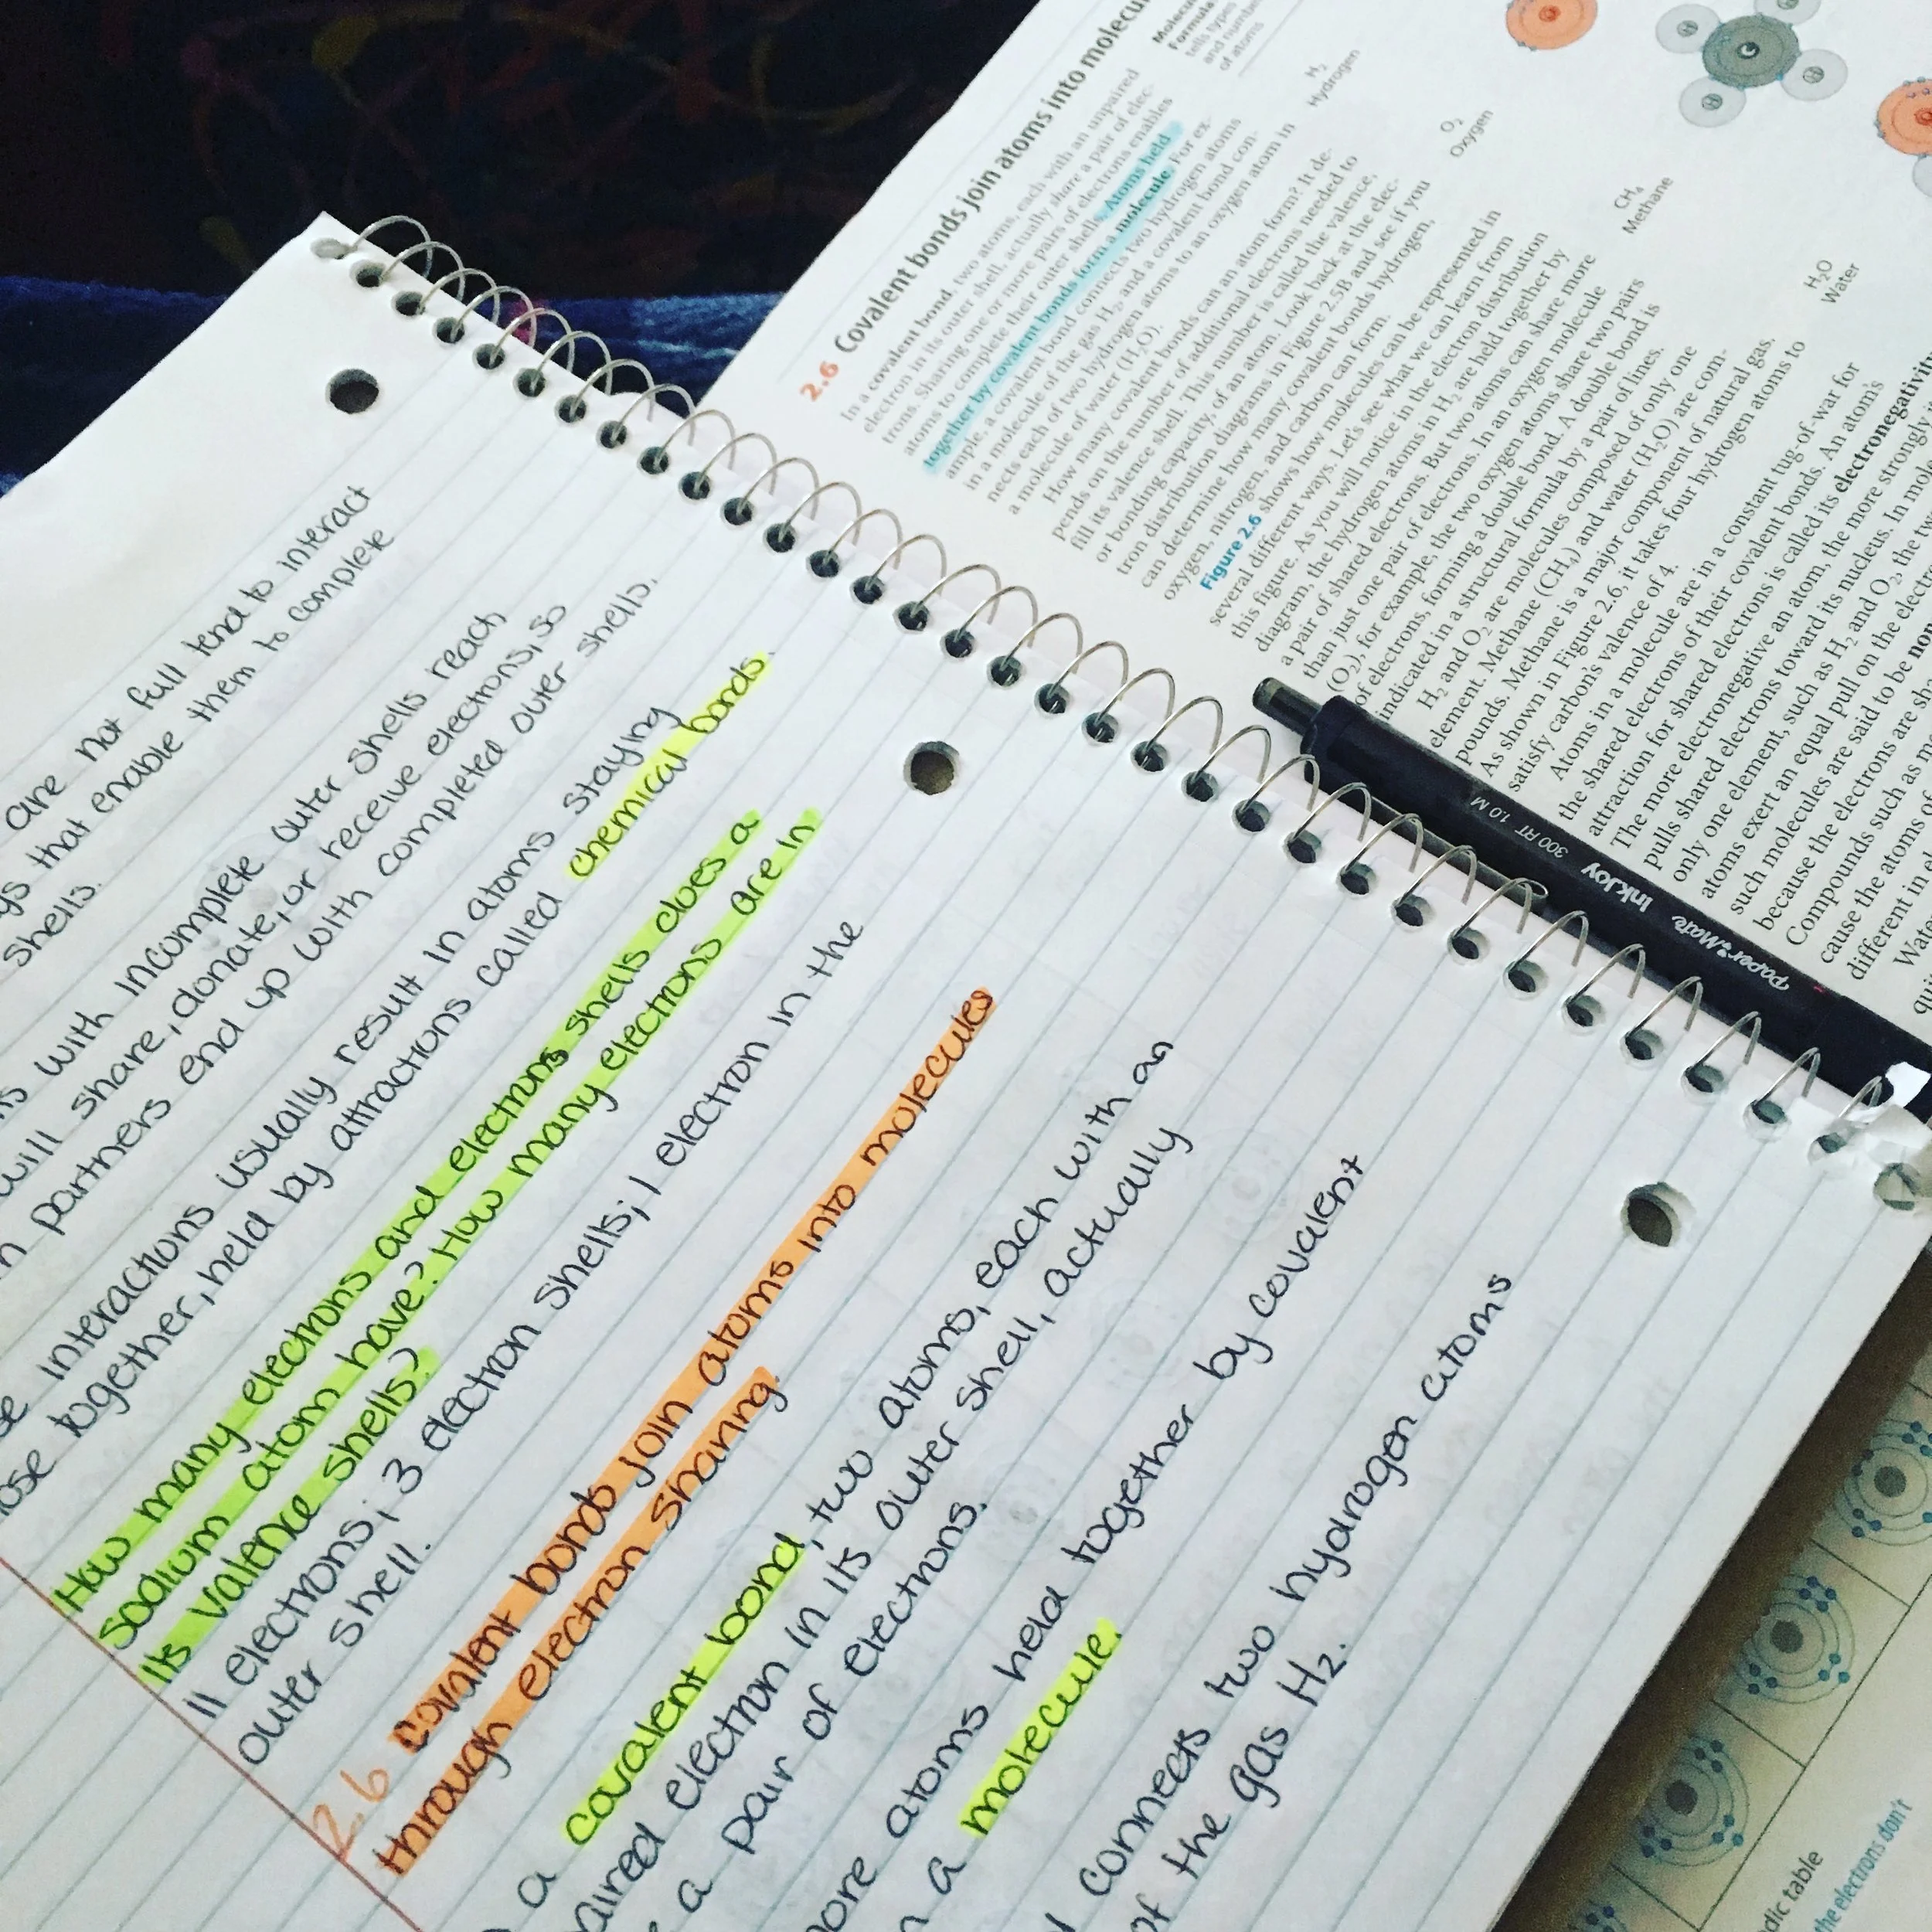 are not full tend to interact
that enable them to complete
shells.
with incomplete outer shells reach
will share, donate, or receive electrons, so
partners end up with completed outer shells.
interactions usually result in atoms staying
together, held by attractions called chemical bonds.
How many electrons and electrons shells does a
sodium atom have? How many electrons are in
its valence shells?
11 electrons; 3 electron shells; 1 electron in the
outer shell.
2.6 covalent bonds join atoms into molecules
through electron sharing.
a covalent bond, two atoms, each with an
electron in its outer shell, actually
a pair of electrons.
atoms held together by covalent
a molecule.
connects two hydrogen atoms
of the gas H2.
2.6 Covalent bonds join atoms into
In a covalent bond, two atoms, each with an unpaired
electron in its outer shell, actually share a pair of elec-
trons. Sharing one or more pairs of electrons enables
atoms to complete their outer shells. Atoms held
together by covalent bonds form a molecule. For ex-
ample, a covalent bond connects two hydrogen atoms
in a molecule of the gas H2, and a covalent bond con-
nects each of two hydrogen atoms to an oxygen atom in
a molecule of water (H2O).
How many covalent bonds can an atom form? It de-
pends on the number of additional electrons needed to
fill its valence shell. This number is called the valence,
or bonding capacity, of an atom. Look back at the elec-
tron distribution diagrams in Figure 2.5B and see if you
can determine how many covalent bonds hydrogen,
oxygen, nitrogen, and carbon can form.
Figure 2.6 shows how molecules can be represented in
several different ways. Let's see what we can learn from
this figure. As you will notice in the electron distribution
diagram, the hydrogen atoms in H2 are held together by
a pair of shared electrons. But two atoms can share more
than just one pair of electrons. In an oxygen molecule
(O2), for example, the two oxygen atoms share two pairs
of electrons, forming a double bond. A double bond is
indicated in a structural formula by a pair of lines.
H2 and O2 are molecules composed of only one
element. Methane (CH4) and water (H2O) are com-
pounds. Methane is a major component of natural gas.
As shown in Figure 2.6, it takes four hydrogen atoms to
satisfy carbon's valence of 4.
Atoms in a molecule are in a constant tug-of-war for
the shared electrons of their covalent bonds. An atom's
attraction for shared electrons is called its electronegativity
The more electronegative an atom, the more strongly
pulls shared electrons toward its nucleus. In
only one element, such as H2 and O2, the
atoms exert an equal pull on the
such molecules are said to be
because the electrons are
Compounds such as
cause the atoms of
different in
Molecular
Formula
tells types
and number
of atoms
H2
Hydrogen
O2
Oxygen
CH4
Methane
H2O
Water
C
H
H
H
PaperMate InkJoy 300 RT 1.0 M
table
the electrons don't